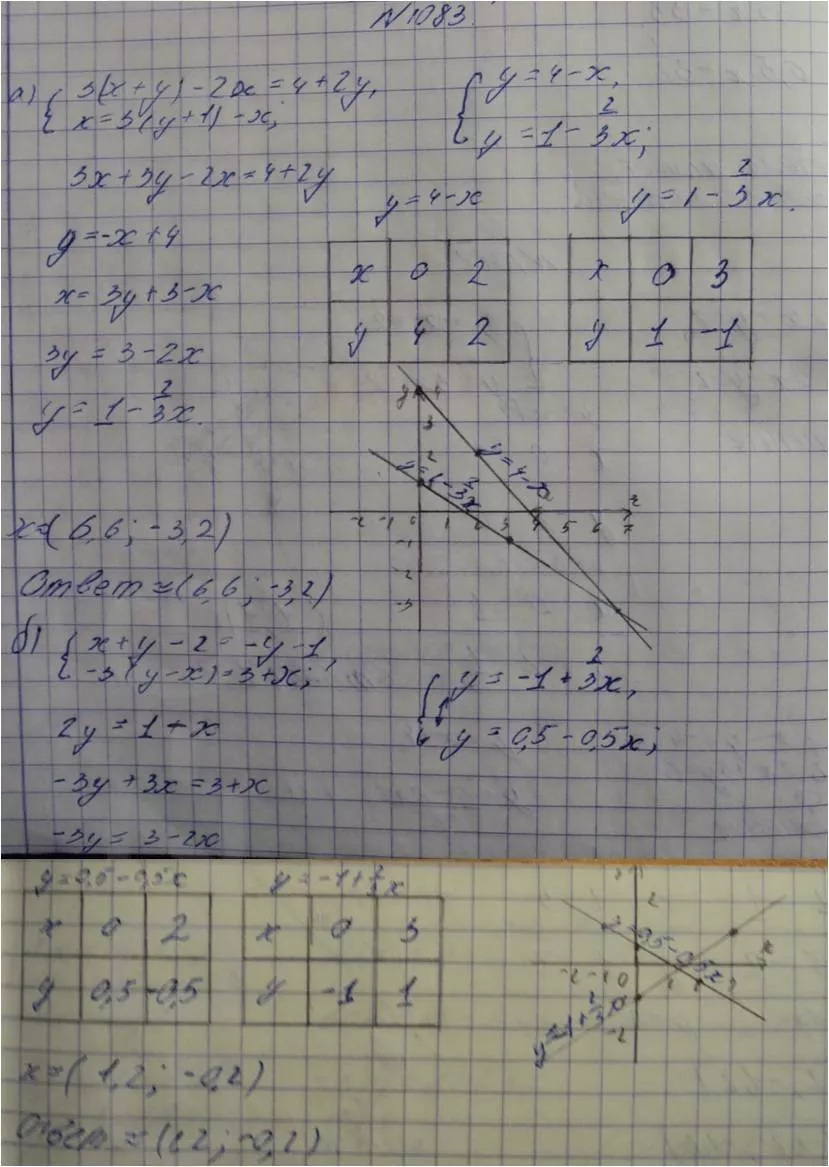 №1083.
а) { 3(x+y)-2x=4+2y,
x=3(y+1)-x;
3x+3y-2x=4+2y
y=-x+4
x=3y+3-x
3y=3-2x
y=1-2/3x.
{ y=4-x,
y=1-2/3x;
y=4-x
x 0 2
y 4 2
y=1-2/3x.
x 0 3
y 1 -1
y 4
3
2
y=4-x
y=1-2/3x
x
-2 -1 0 1 2 3 4 5 6 7
-1
-2
-3
x=(6,6; -3,2)
Ответ=(6,6; -3,2)
б) { x+y-2=-y-1,
-3(y-x)=3+x;
2y=1+x
-3y+3x=3+x
-3y=3-2x
{ y=-1+2/3x,
y=0,5-0,5x;
y=0,5-0,5x
x 0 2
y 0,5 -0,5
y=-1+2/3x
x 0 3
y -1 1
2
y=0,5-0,5x
x
-2 -1 0 1 2 3
y=-1+2/3x
-2
x=(1,2; -0,2)
Ответ=(1,2; -0,2)